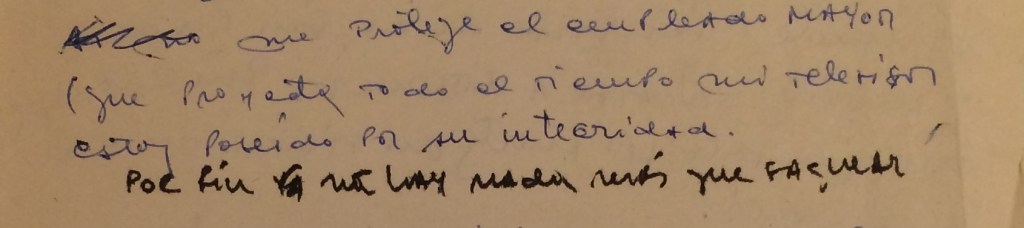 me protege el empleado MAYOR
(que proyecta todo el tiempo mi televisor
estoy poseído por su integridad.
Por fin ya no hay nada más que saquear